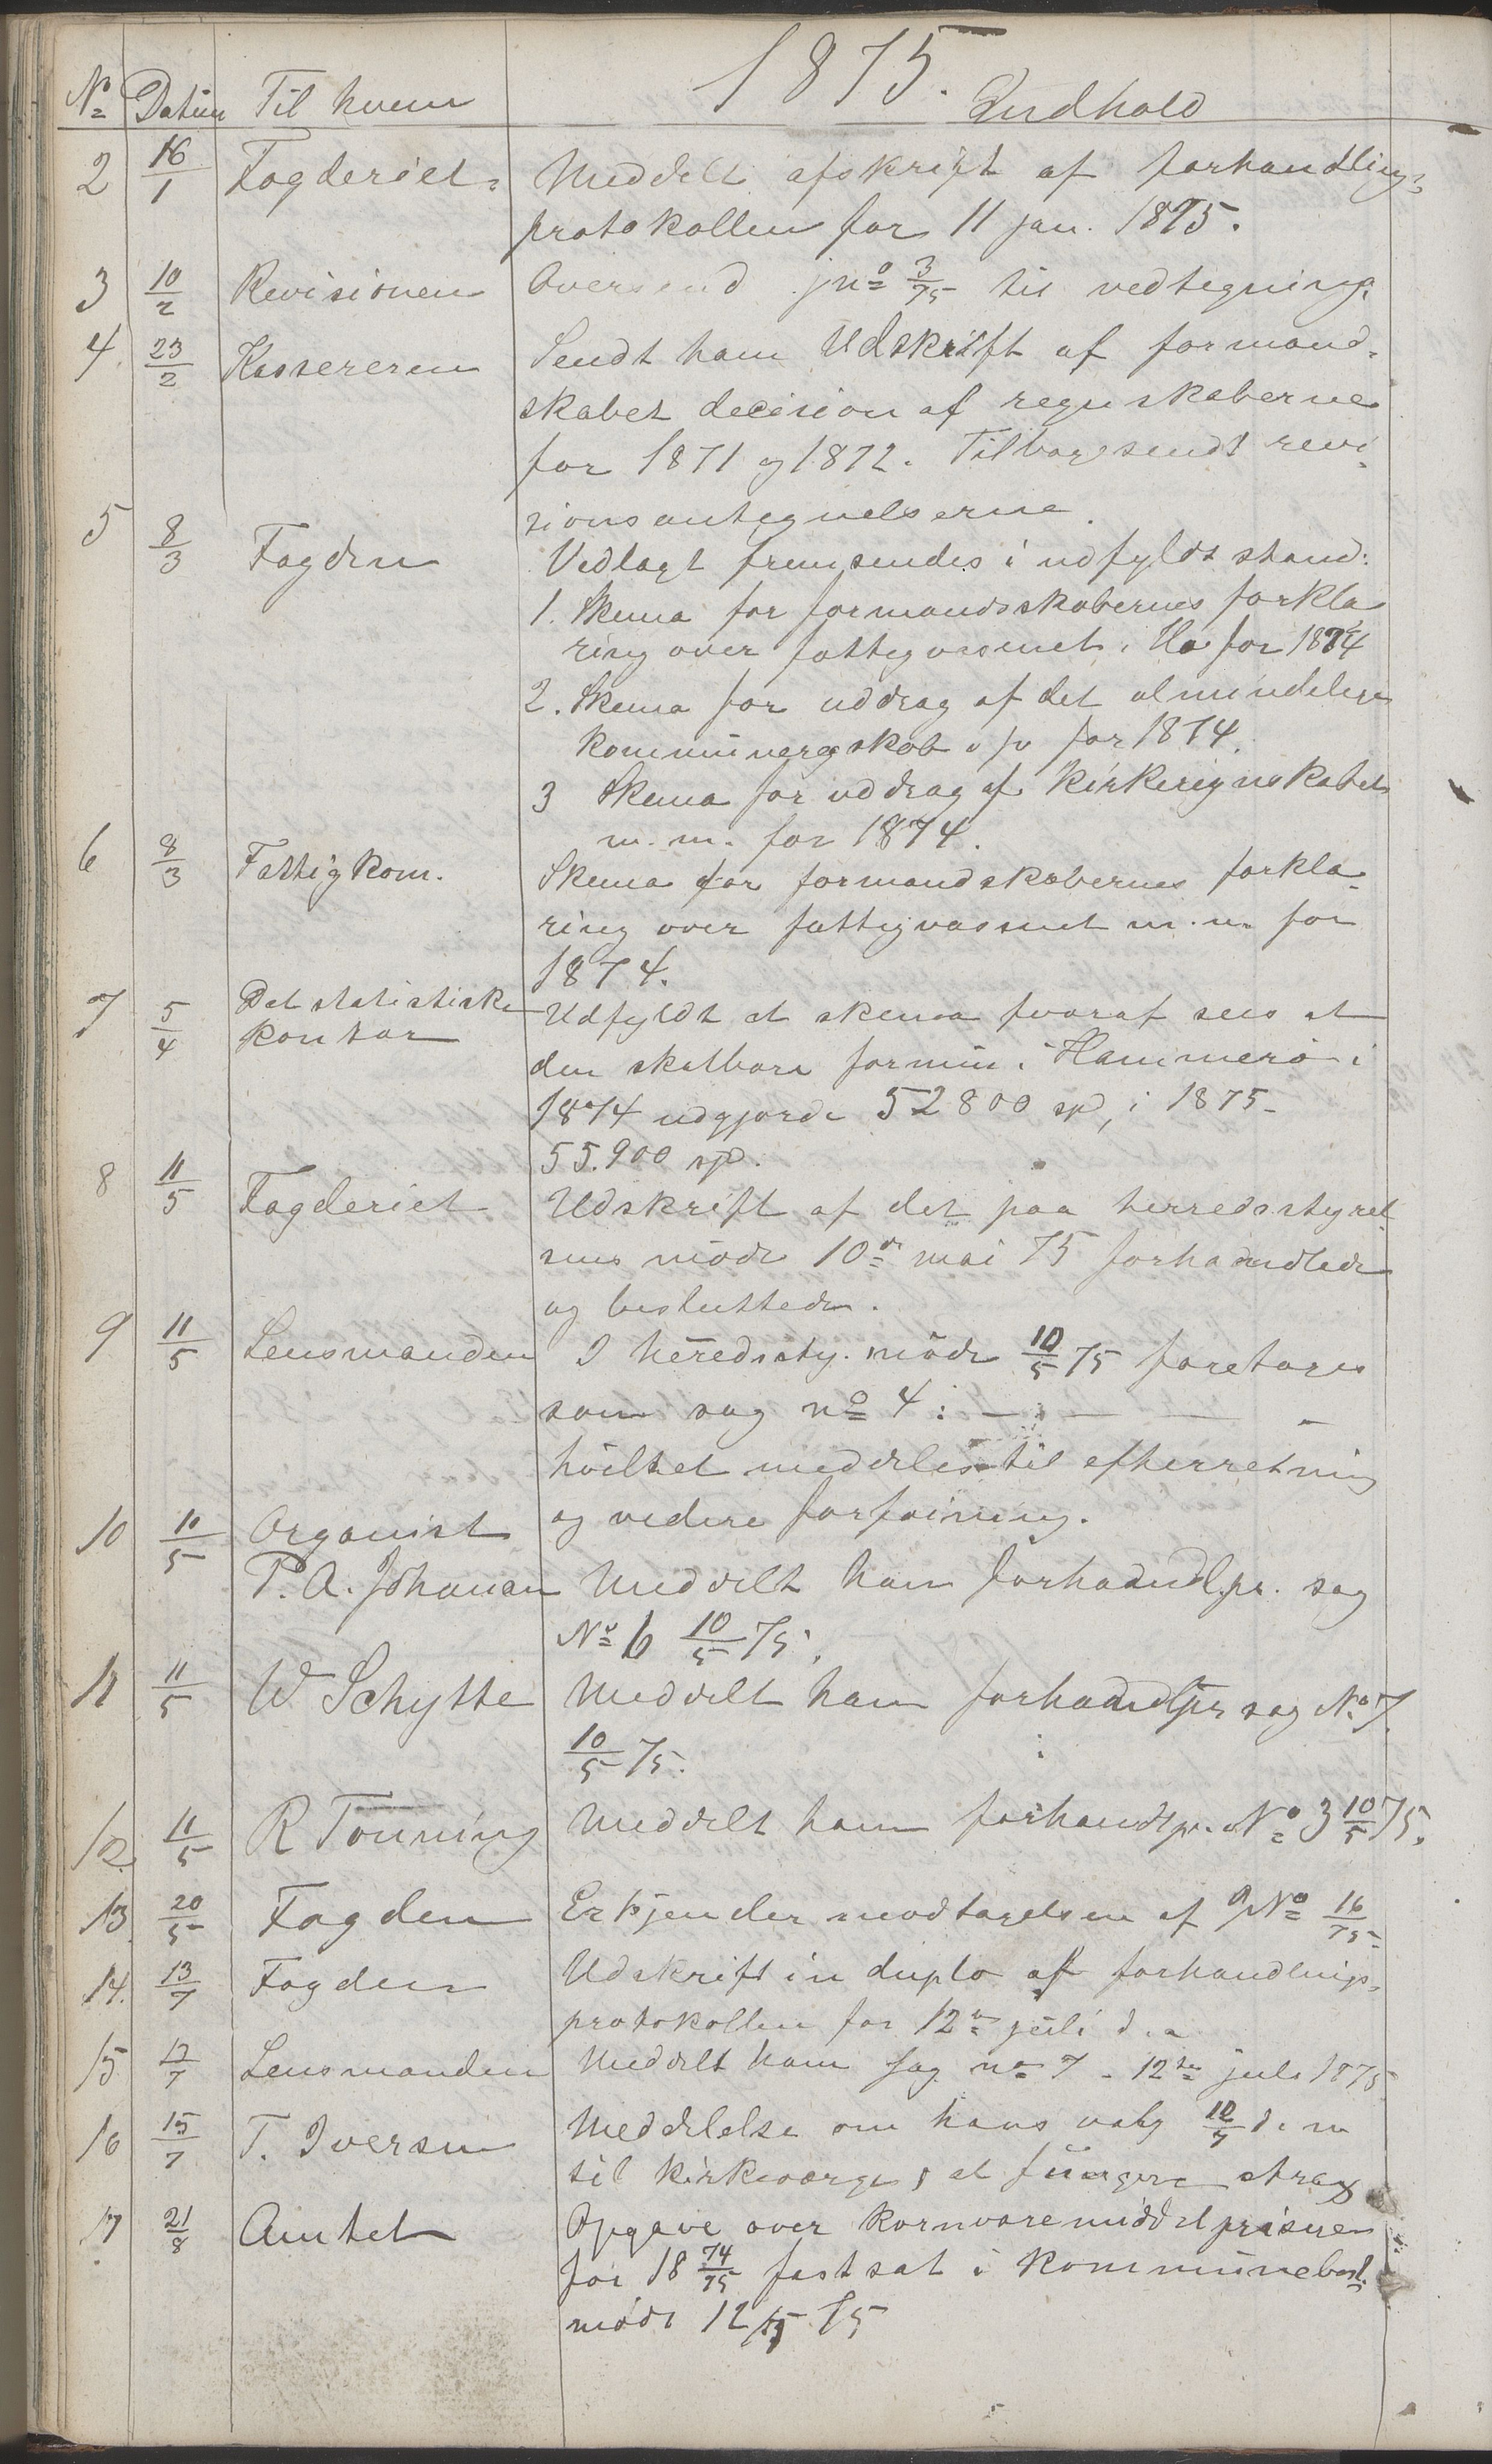 1875.
No Datum Til hvem Indhold
2 16/1 Fogderiet. Meddelt afskrift af forhandlings-
protokollen for 11 jan. 1875.
3 10/2 Revisionen Oversend jno 3/75 til vedtegning.
4 23/2 Kassereren Sendt ham Udskrift af formand-
skabet decision af regnskaberne
for 1871 og 1872. Tilbagesendt revi-
sionsantegnelserne.
5 8/3 Fogden Vedlagt fremsendes i udfyldt stand:
1. Skema for formandsskabernes forkla
ring over fattigvæsenet. Ho for 1874
2. Skema for uddrag af det almindelige
kommuneregskab o fv for 1874.
3 Skema for uddrag af Kirkeregnskabet
m. m. for 1874.
6 8/3 Fattigkom. Skema for formandskabernes forkla-
ring over fattigvæsnet m. m. for
1874.
7 5/4 Det statistiske
kontor Udfyldt et skema hvoraf sees at
den skatbare formue i Hammerø i
1874 udgjorde 52800 spd, i 1875-
55.900 spd.
8 11/5 Fogderiet Udskrift af det paa herredsstyrel
sens møde 10de mai 75 forhandlede
og besluttede.
9 11/5 Lensmanden I heredssty. møde 10/5 75 foretoges
som sag no 4: — : — — —
hvilket meddeles til efterretning
og videre forføining.
10 10/5 Organist
P. A. Johansen Meddelt ham forhandl.pr. sag
No 6 10/5 75.
11 11/5 W Schytte Meddelt ham forhandlpr sag No 7.
10/5 75.
12. 11/5 R Tønning Meddelt ham forhandlpr. No 3 10/5 75.
13. 20/5 Fogden Erkjender modtagelsen af JNo 16/75.
14. 13/7 Fogden Udskrift in duplo af forhandlings-
protokollen for 12te juli d. a
15 13/7 Lensmanden Meddelt ham sag no 7 - 12te juli 1875
16 15/7 T. Iversen Meddelelse om hans valg 12/7 d. m
til kirkeværge, at fungere strax
17. 21/8 Amtet Opgave over kornvaremiddelprisene
for 18 74/75 fastsat i kommunebest.
møde 12 75